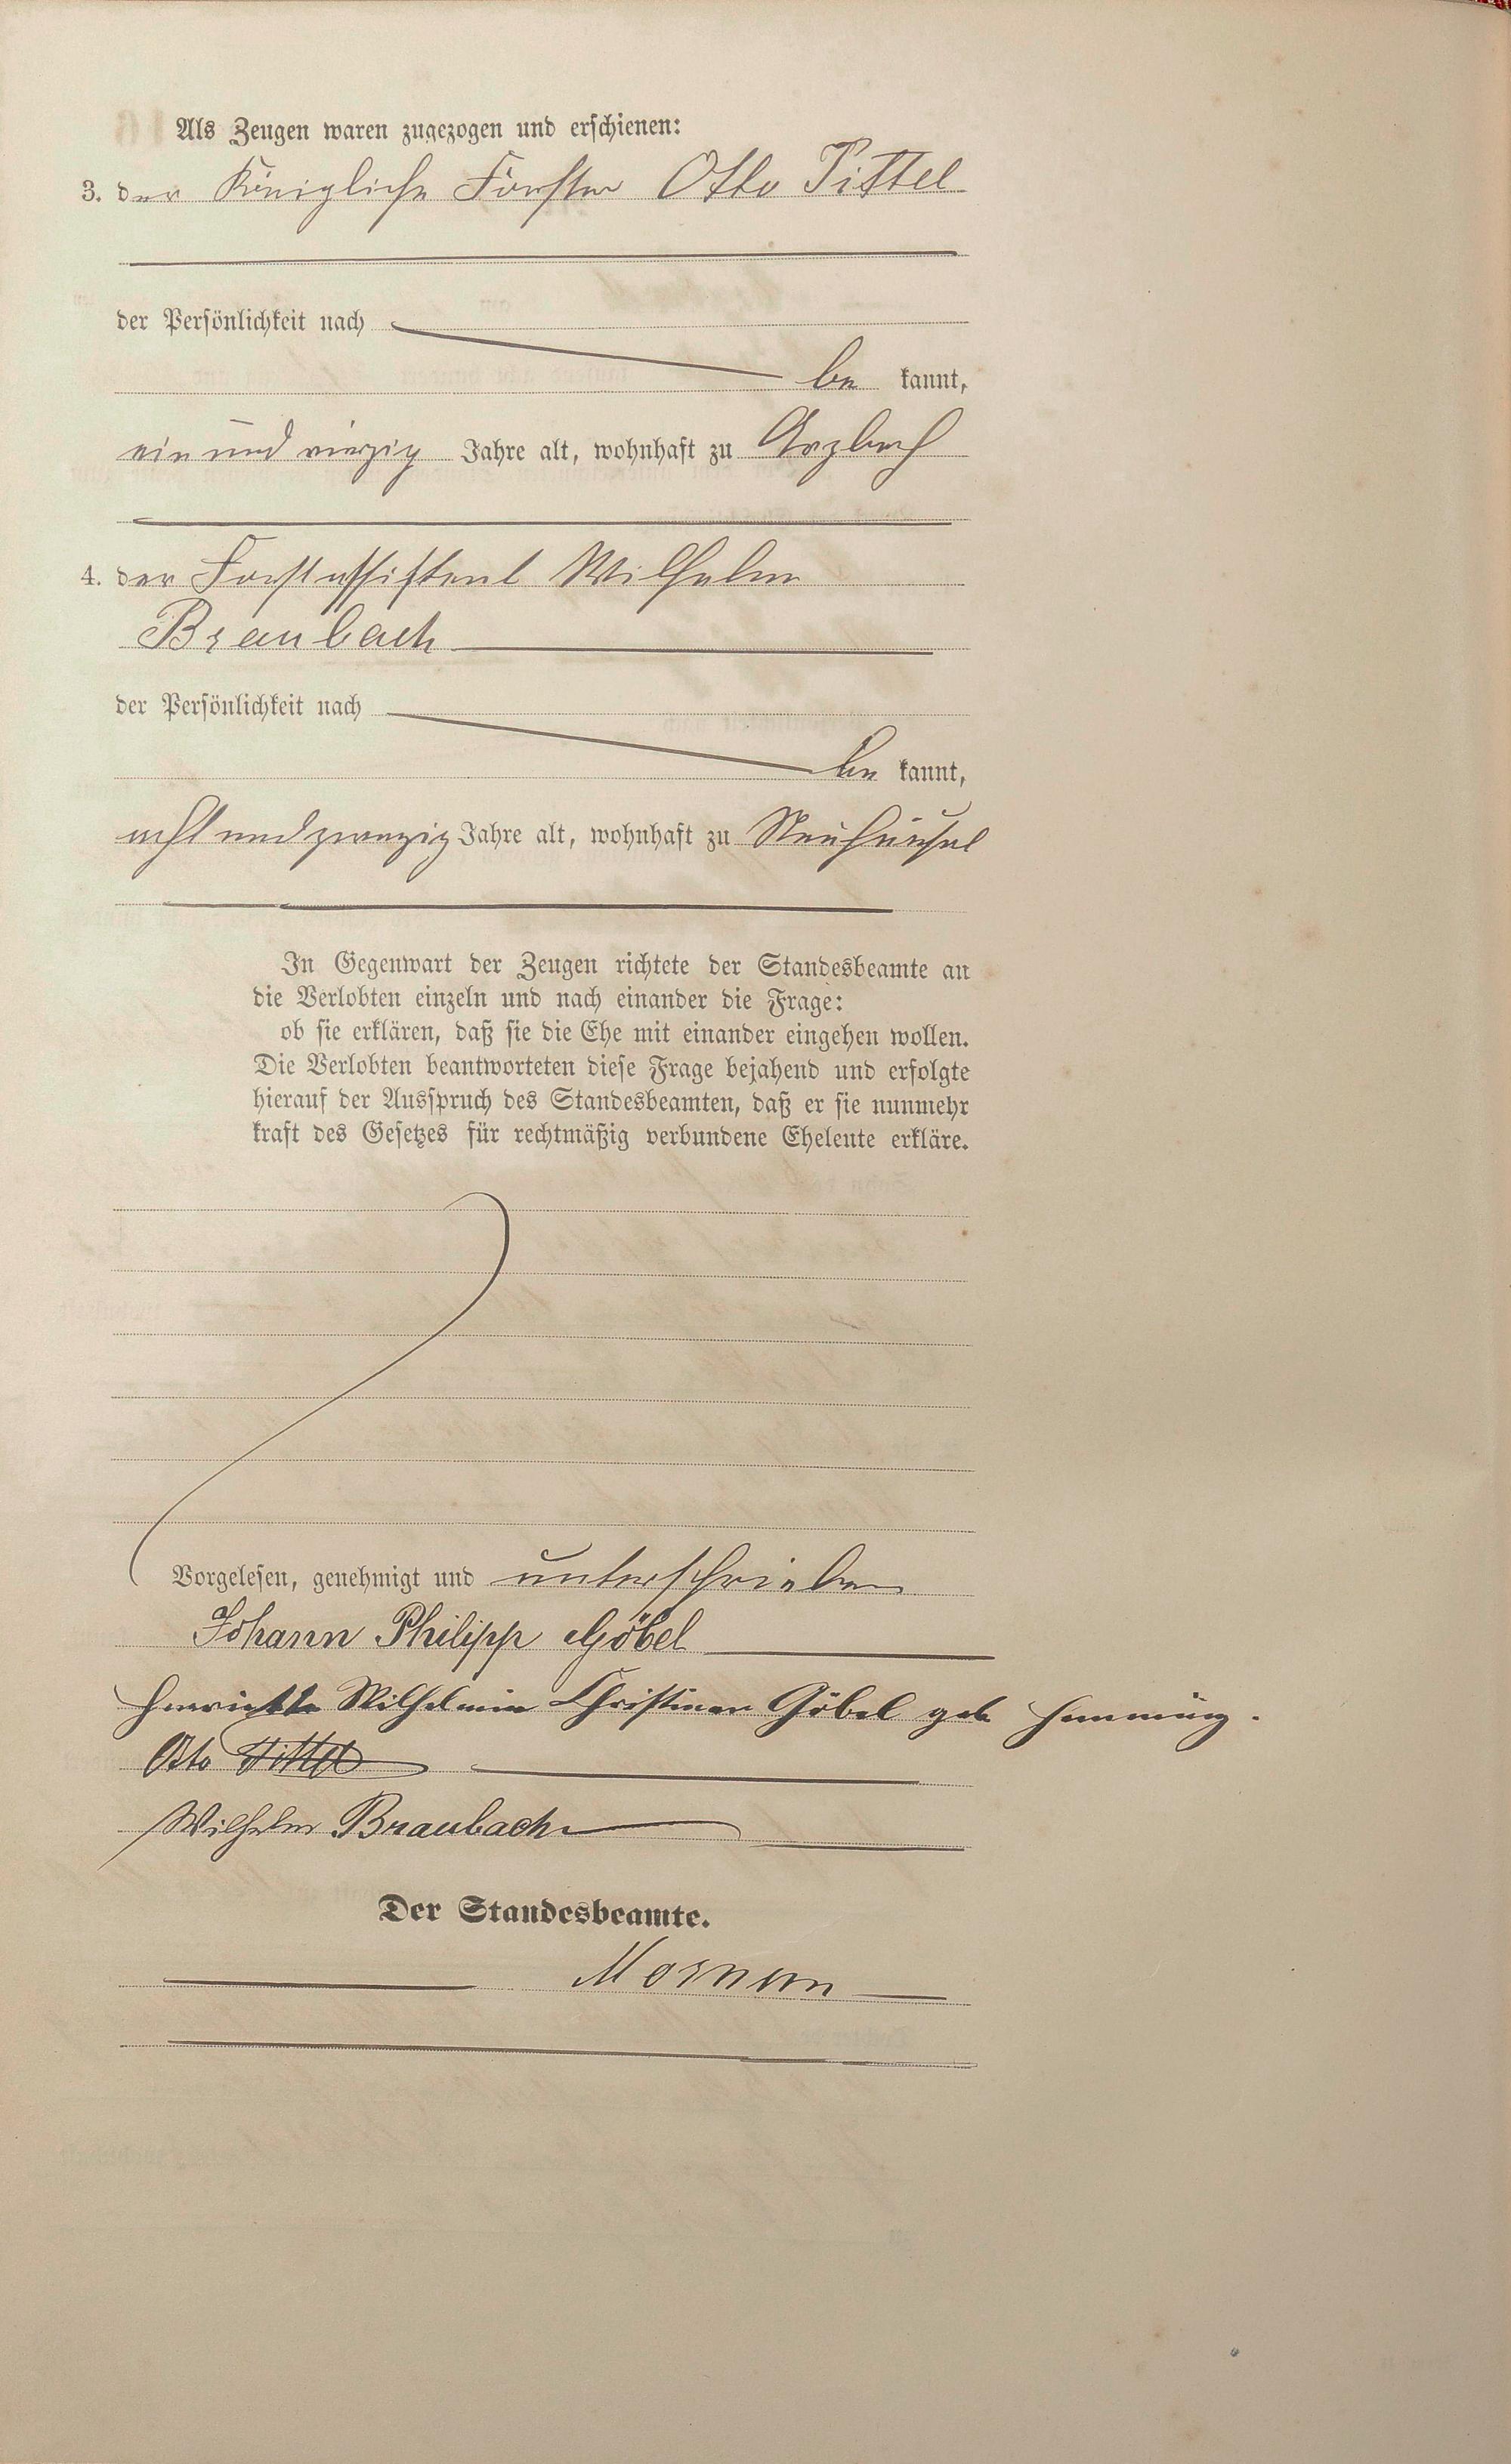 Als Zeugen waren zugezogen und erschienen:
3. der Königliche Förster Otto Tittel
der Persönlichkeit nach
be kannt,
ein und vierzig Jahre alt, wohnhaft zu Arzbach
4. der Forstassistent Wilhelm
Braubach
der Persönlichkeit nach
be kannt,
acht und zwanzig Jahre alt, wohnhaft zu Neuhäusel
In Gegenwart der Zeugen richtete der Standesbeamte an
die Verlobten einzeln und nach einander die Frage:
ob sie erklären, daß sie die Ehe mit einander eingehen wollen.
Die Verlobten beantworteten diese Frage bejahend und erfolgte
hierauf der Ausspruch des Standesbeamten, daß er sie nunmehr
kraft des Gesetzes für rechtmäßig verbundene Eheleute erkläre.
Vorgelesen, genehmigt und unterschrieben
Johann Philipp Göbel
Henriette Wilhelmine Christiane Göbel geb Hemming.
Otto Tittel
Wilhelm Braubach
Der Standesbeamte.